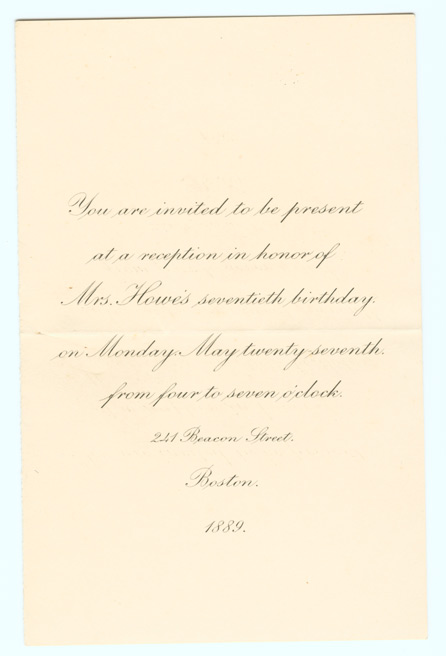 You are invited to be present
at a reception in honor of
Mrs. Howe's seventieth birthday.
on Monday. May twenty seventh.
from four to seven o'clock.
241 Beacon Street.
Boston.
1889.